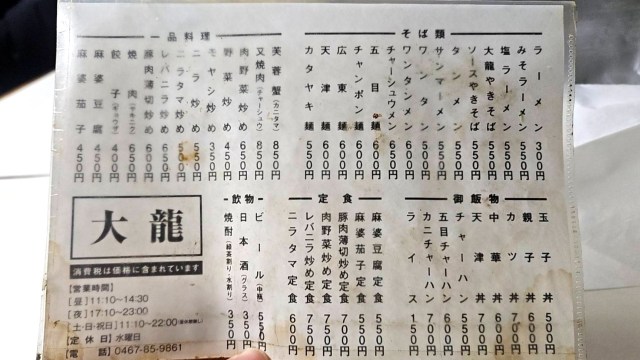 そば類
ラーメン 300円
みそラーメン 500円
塩ラーメン 500円
大龍やきそば 550円
ソースやきそば 500円
タンメン 500円
サンマーメン 550円
ワンタン
ワンタンメン 550円
チャーシュウメン 650円
五目麺 600円
チャンポン麺
広東麺 550円
天津麺 550円
カタヤキ麺 550円
一品料理
芙蓉蟹(カニタマ) 850円
叉焼肉(チャーシュウ) 850円
肉野菜炒め 650円
野菜炒め
モヤシ炒め
ニラ炒め
ニラタマ炒め
レバニラ炒め 650円
豚肉薄切炒め 650円
焼肉(ヤキニク) 650円
餃子(ギョウザ) 400円
麻婆豆腐 450円
麻婆茄子 450円
御飯物
玉子丼 500円
親子丼 600円
カツ丼 700円
中華丼 600円
天津丼 700円
チャーハン 500円
五目チャーハン 600円
カニチャーハン 700円
ライス 150円
定食
麻婆豆腐定食 550円
麻婆茄子定食 550円
豚肉薄切炒め定食 700円
肉野菜炒め定食 750円
レバニラ炒め定食 750円
ニラタマ定食 600円
飲物
ビール(中瓶) 550円
日本酒(グラス) 350円
焼酎(緑茶割り・水割り) 350円
大龍
消費税は価格に含まれています
【営業時間】
[昼]11:10~14:30
[夜]17:10~23:00
土・日・祝日 11:10~22:00
定休日 水曜日
電話 0467-85-9861